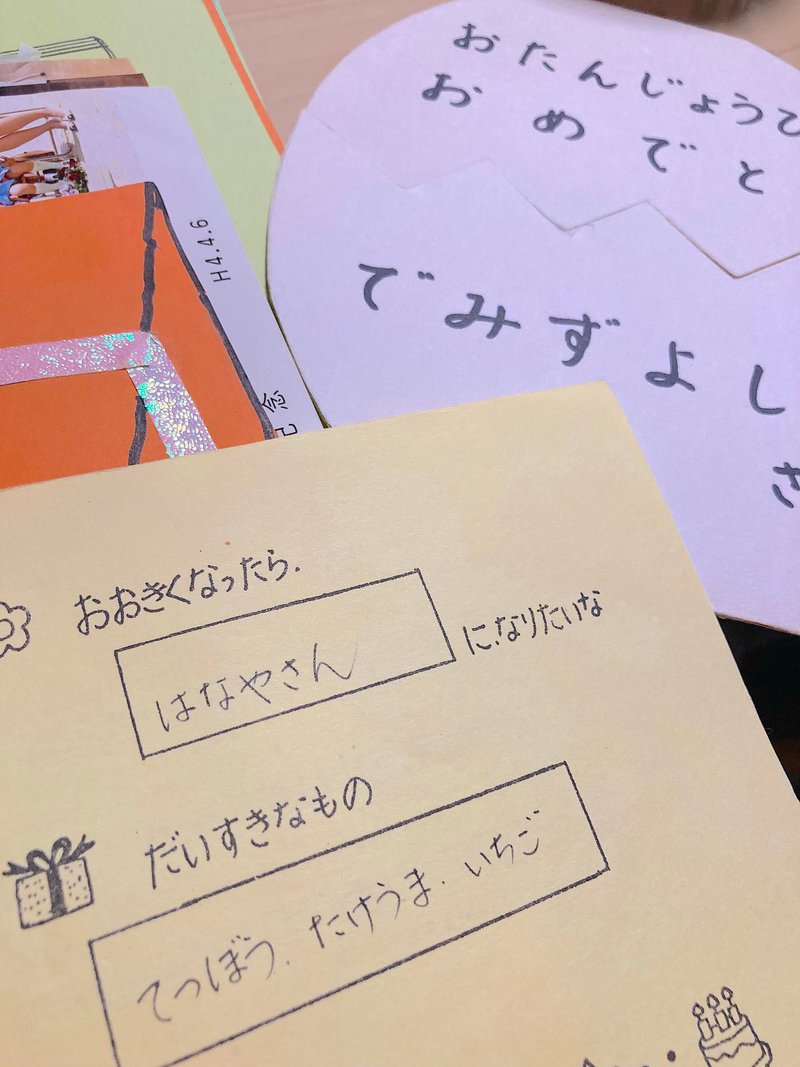 おたんじょうひ
おめでと
でみずよし
さ
H4.4.6
記念
おおきくなったら.
はなやさん
になりたいな
だいすきなもの
てつぼう.たけうま.いちご